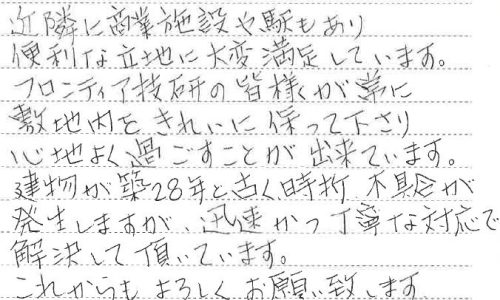 近隣に商業施設や駅もあり
便利な立地に大変満足しています。
フロンティア技研の皆様が常に
敷地内をきれいに保って下さり
心地よく過ごすことが出来ています。
建物が築28年と古く時折不具合が
発生しますが、迅速かつ丁寧な対応で
解決して頂いています。
これからもよろしくお願い致します